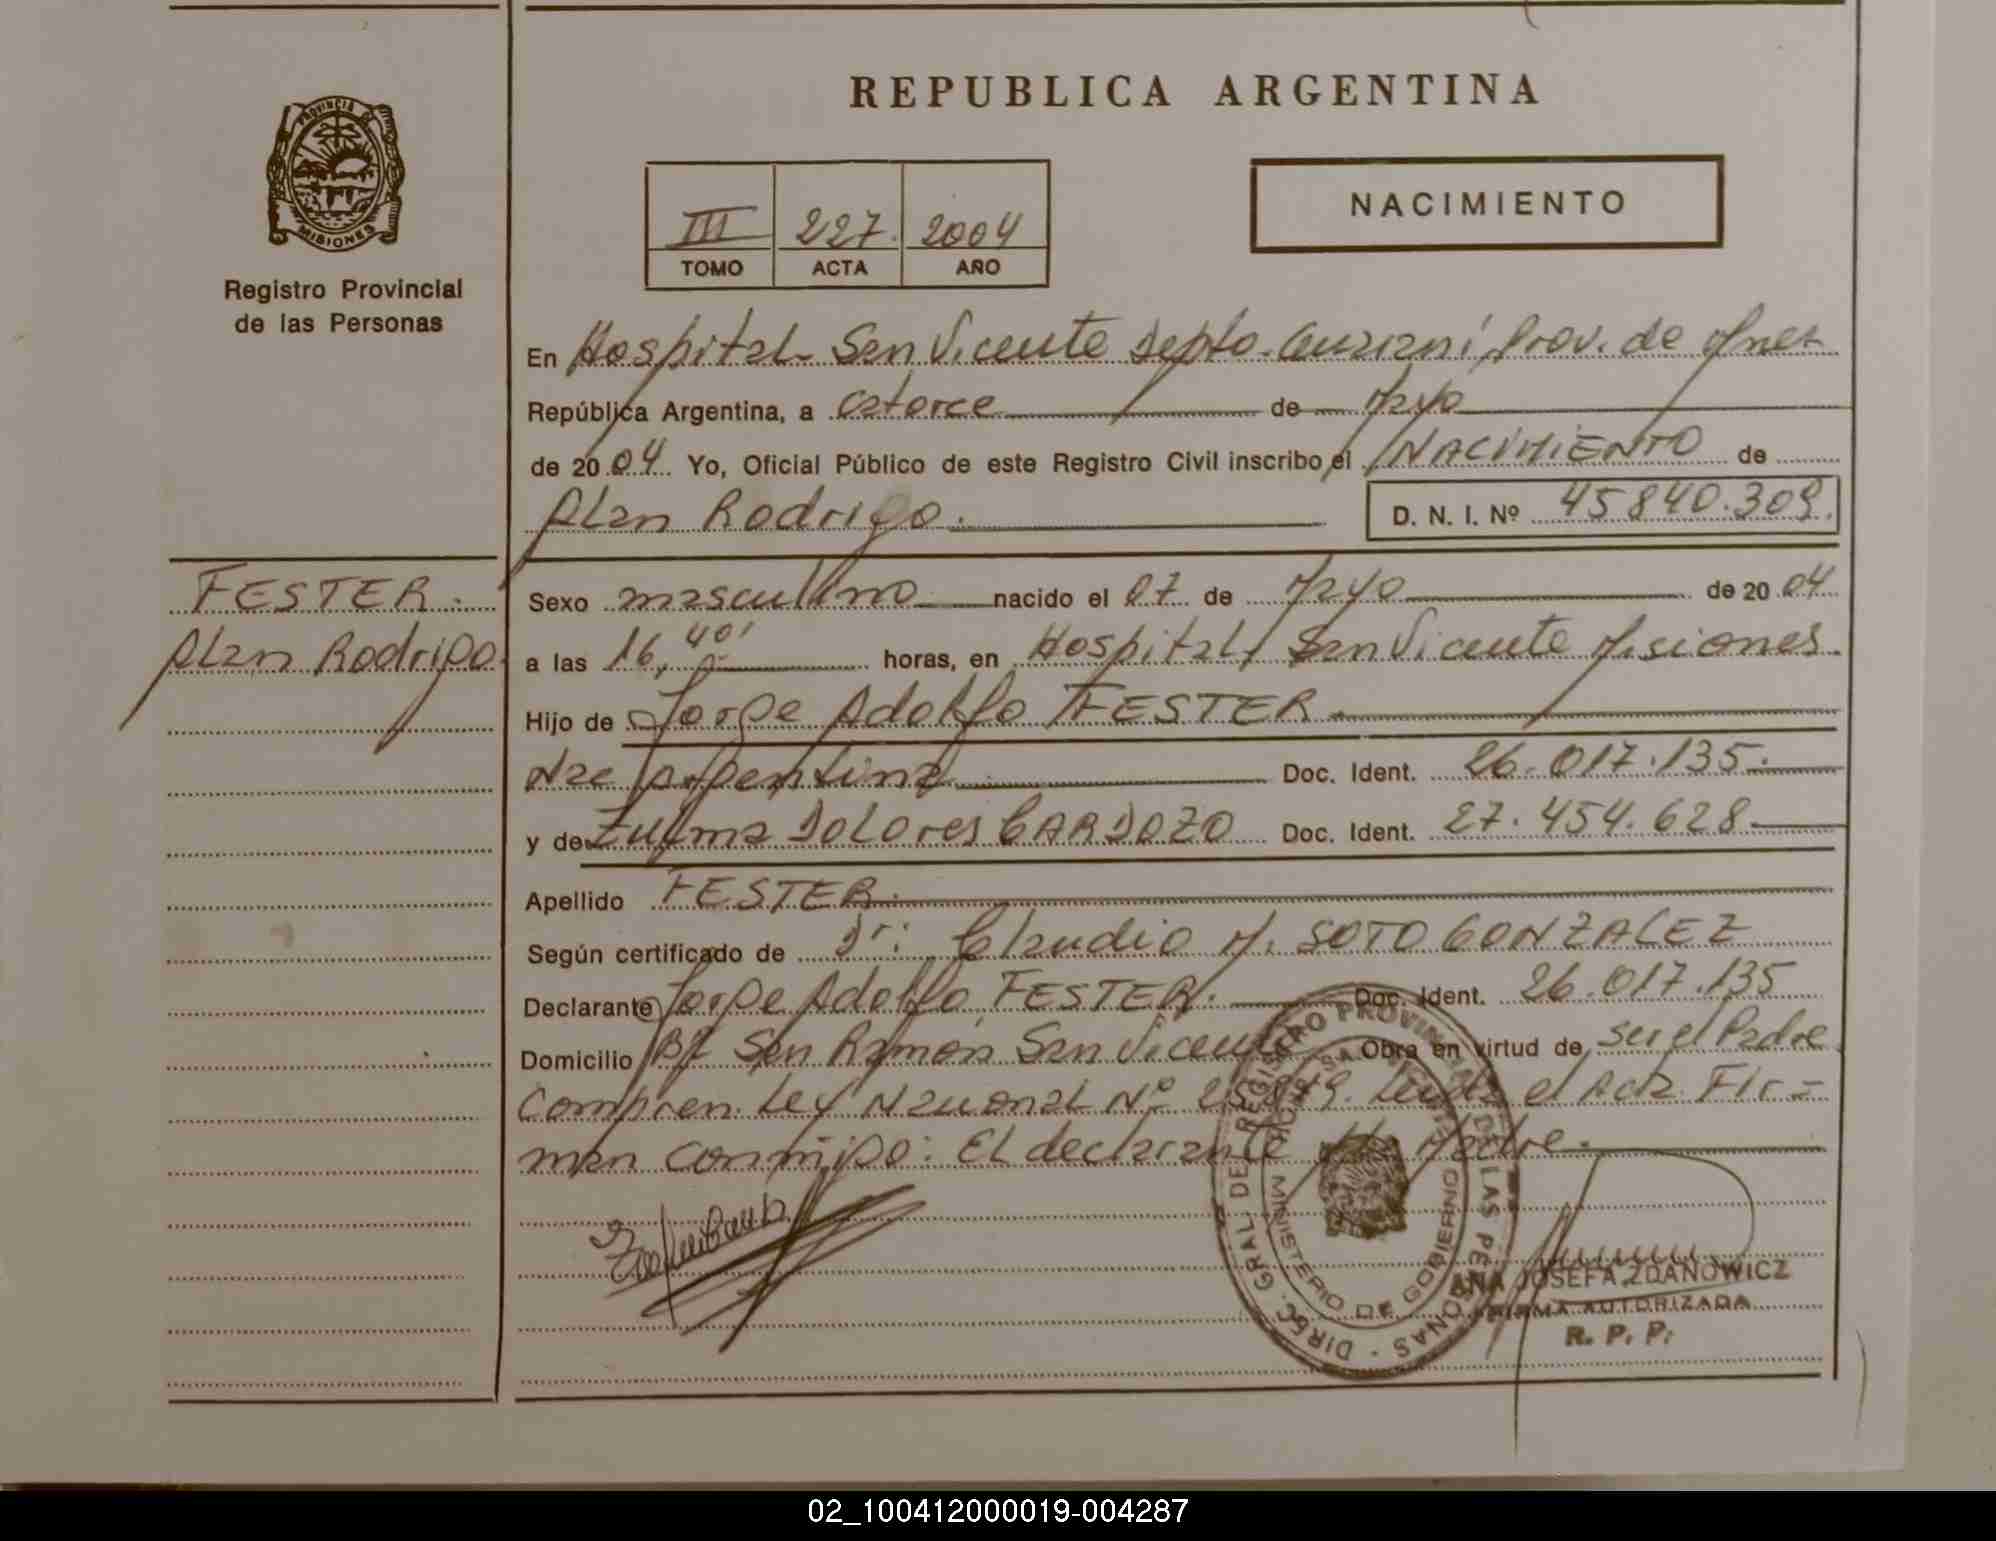 REPUBLICA ARGENTINA
PROVINCIA DE
MISIONES
Registro Provincial
de las Personas
NACIMIENTO
III 227. 2004
TOMO ACTA AÑO
En Hospital San Vicente Depto. Guarani, Prov. de Mnes
República Argentina, a catorce de Mayo
de 2004 Yo, Oficial Público de este Registro Civil inscribo el NACIMIENTO de
Alan Rodrigo. D. N. I. Nº 45840.309.
FESTER.
Alan Rodrigo
Sexo masculino nacido el 07 de Mayo de 2004
a las 16,40' horas, en Hospital San Vicente Misiones.
Hijo de Jorge Adolfo FESTER.
Nac Argentina Doc. Ident. 26.017.135.
y de Zulma DOLores CARDOZO Doc. Ident. 27.454.628
Apellido FESTER.
Según certificado de Dr: Claudio M. SOTO GONZALEZ
Declarante Jorge Adolfo FESTER. Doc. Ident. 26.017.135
Domicilio Bº San Ramón San Vicente Obra en virtud de ser el Padre
Compren. Ley Nacional Nº el Acta Fir=
man conmigo: El declarante Madre.
DIREC. GRAL. DE REGISTRO PROVINCIAL DE LAS PERSONAS
MINISTERIO DE GOBIERNO
ANA JOSEFA ZDANOWICZ
FIRMA AUTORIZADA
R. P. P.
02_100412000019-004287